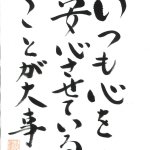 いつも心を
安心させている
ことが大事